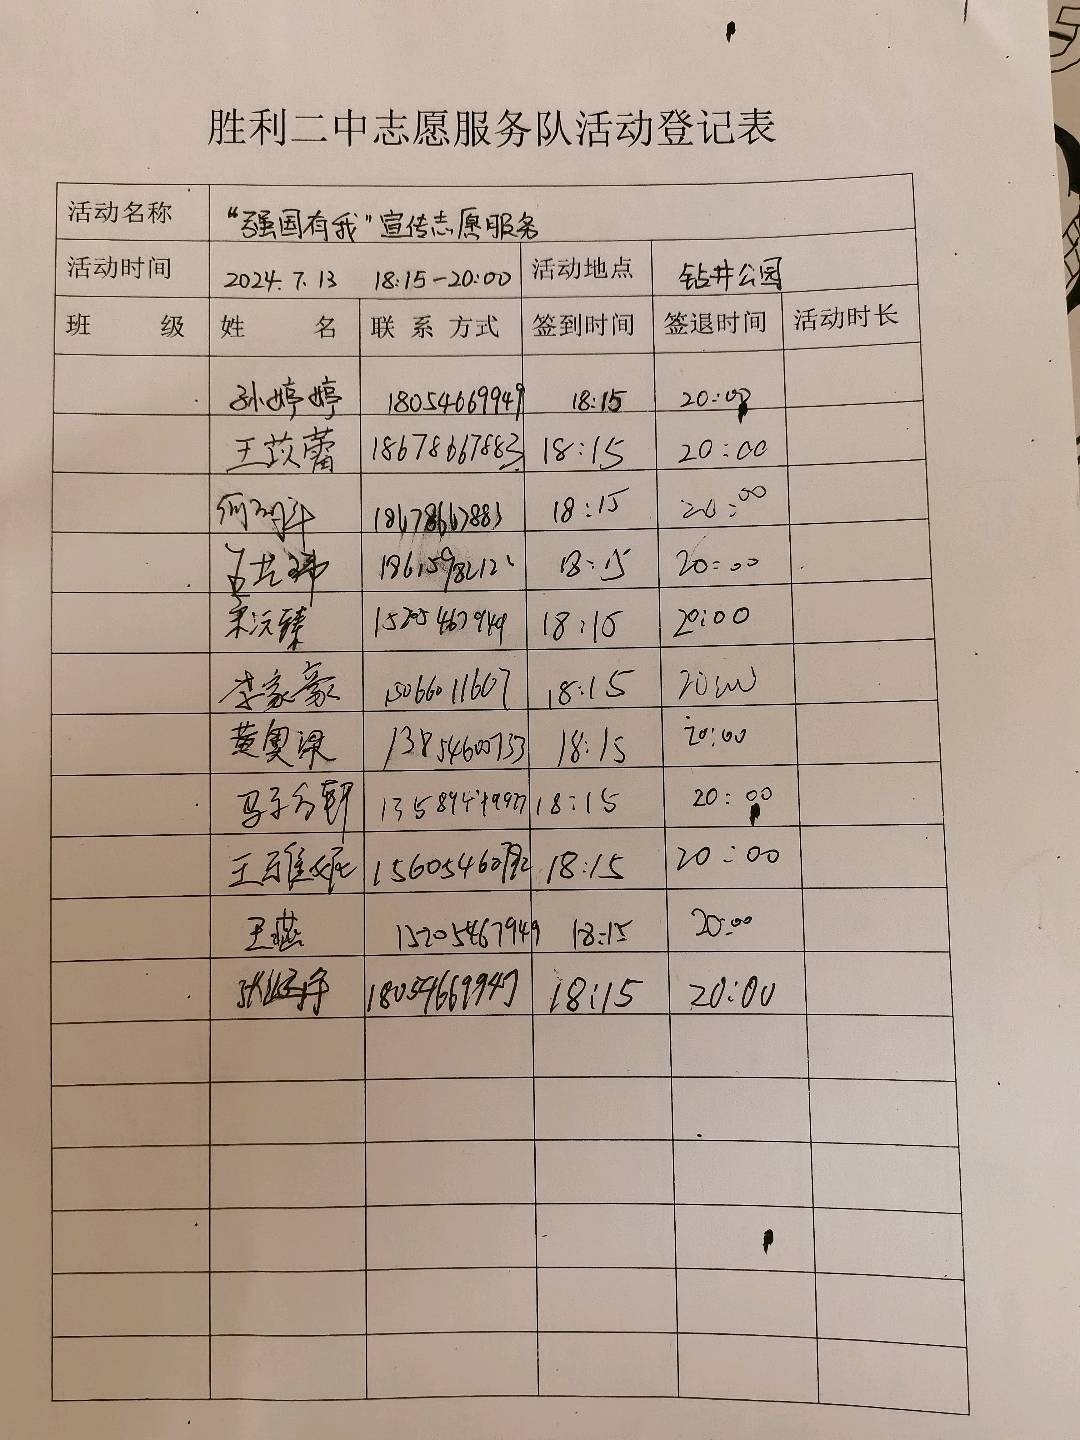 胜利二中志愿服务队活动登记表
活动名称 “强国有我”宣传志愿服务
活动时间 2024.7.13 18:15-20:00 活动地点 钻井公园
班 级 姓 名 联系方式 签到时间 签退时间 活动时长
孙婷婷 18054669949 18:15 20:00
王苡蕾 18678667883 18:15 20:00
18678667883 18:15 20:00
18:15 20:00
宋沅臻 15205467949 18:15 20:00
李家豪 15066011607 18:15 20:00
黄奥深 13854600753 18:15 20:00
18:15 20:00
王 18:15 20:00
王燕 15205467949 18:15 20:00
18054669947 18:15 20:00